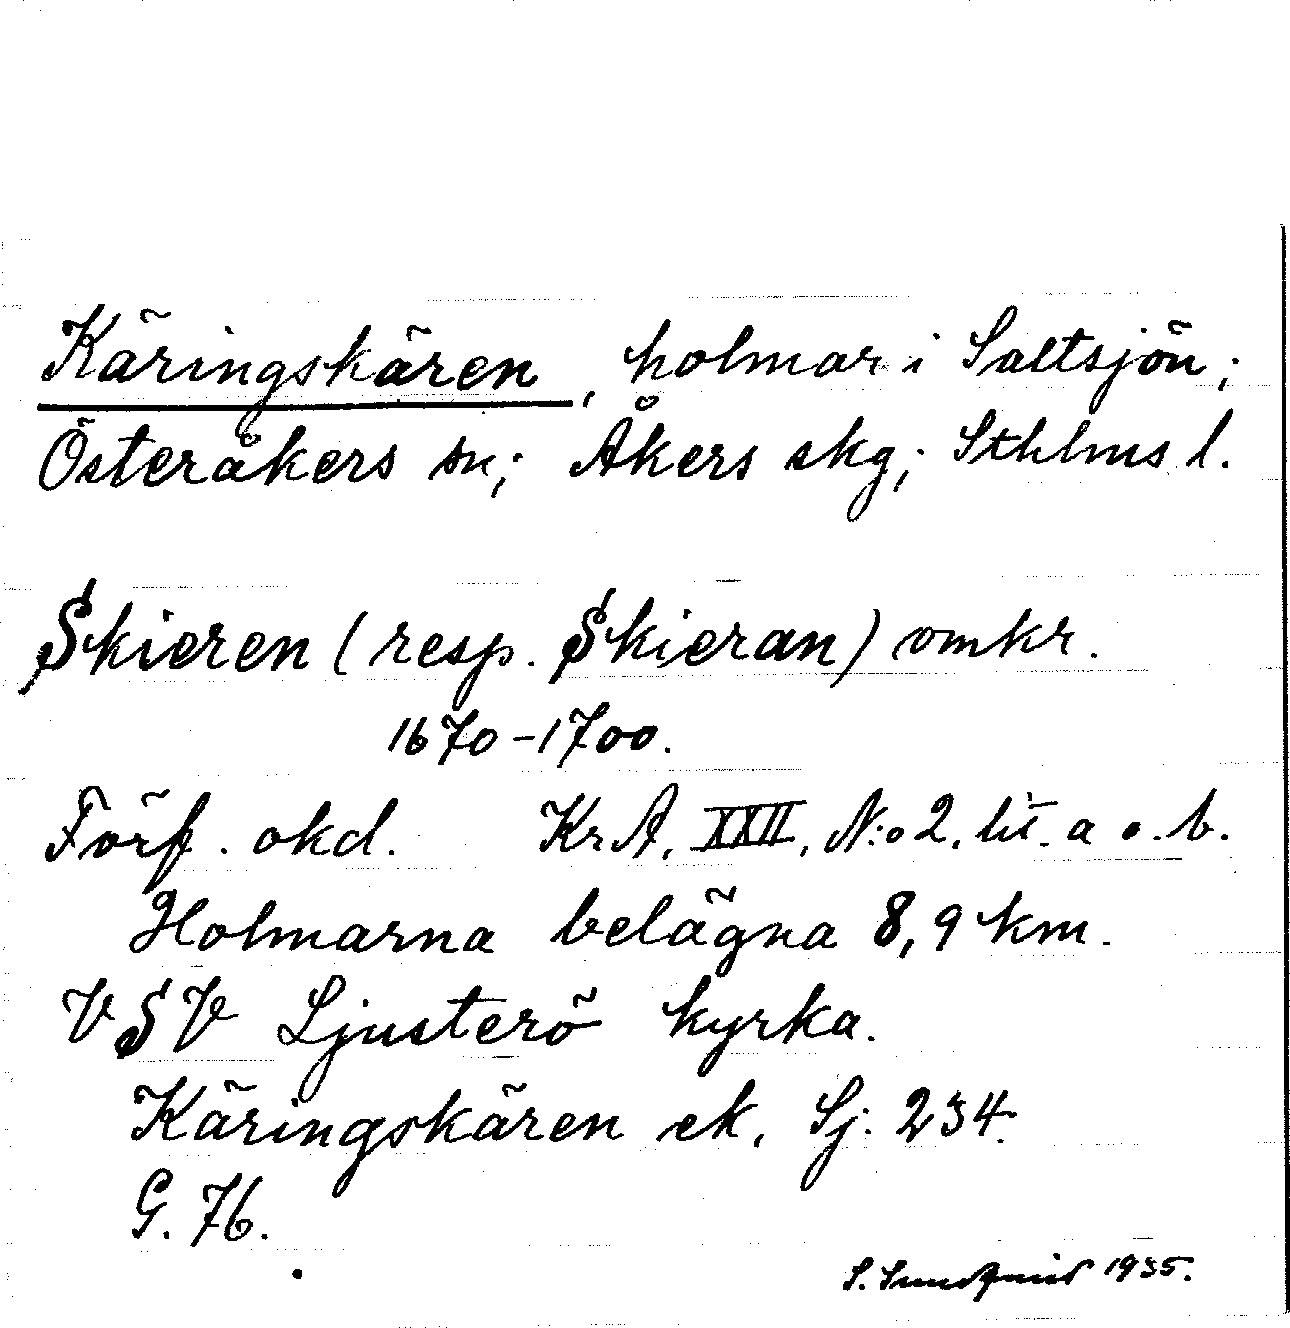 Käringskären, holmar i Saltsjön;
Österåkers sn; Åkers skg; Sthlms l.
Skieren (resp. Skieran) omkr.
1670-1700.
Förf. okd. KrA, XXII, N:o 2. lit. a o. b.
Holmarna belägna 8,9 km.
VSV Ljusterö kyrka.
Käringskären ek. Sj. 234.
G. 76.
S. Sundquist 1935.